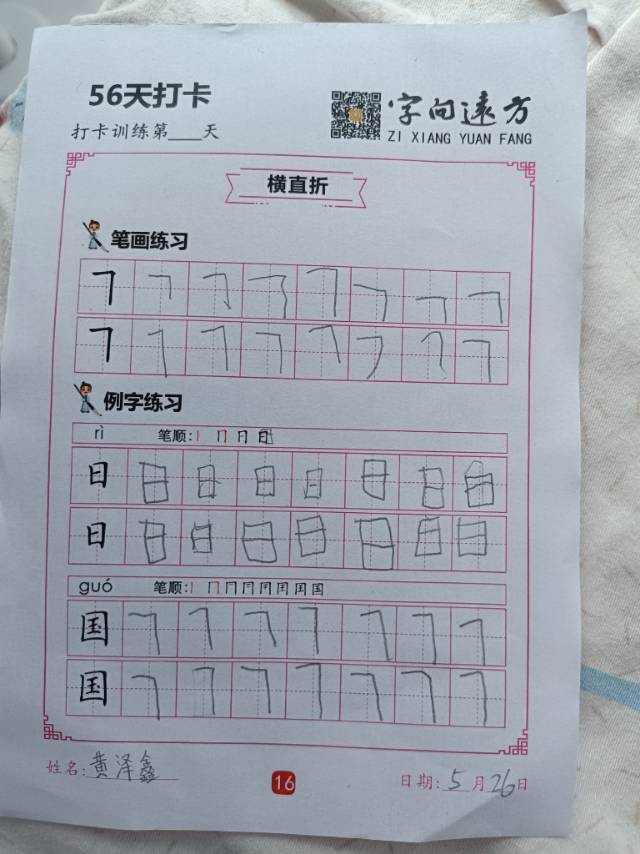 56天打卡
字向远方
打卡训练第____天
ZI XIANG YUAN FANG
横直折
笔画练习
㇕ ㇕ ㇕ ㇕ ㇕ ㇕ ㇕ ㇕
㇕ ㇕ ㇕ ㇕ ㇕ ㇕ ㇕ ㇕
例字练习
rì 笔顺: 丨 冂 日 日
日 日 日 日 日 日 日 日
日 日 日 日 日 日 日 日
guó 笔顺: 丨 冂 冂 冃 国 国
国 ㇕ ㇕ ㇕ ㇕ ㇕ ㇕ ㇕
国 ㇕ ㇕ ㇕ ㇕ ㇕ ㇕ ㇕
姓名:黄泽鑫
16
日期:5月26日